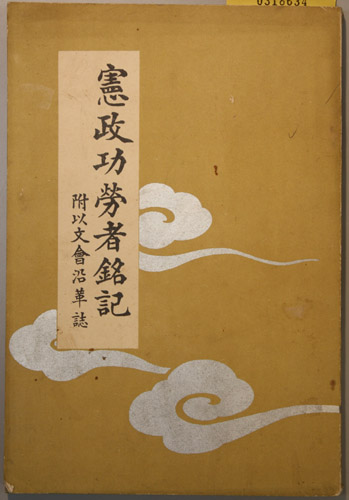 憲政功勞者銘記
附以文會沿革誌
0318634